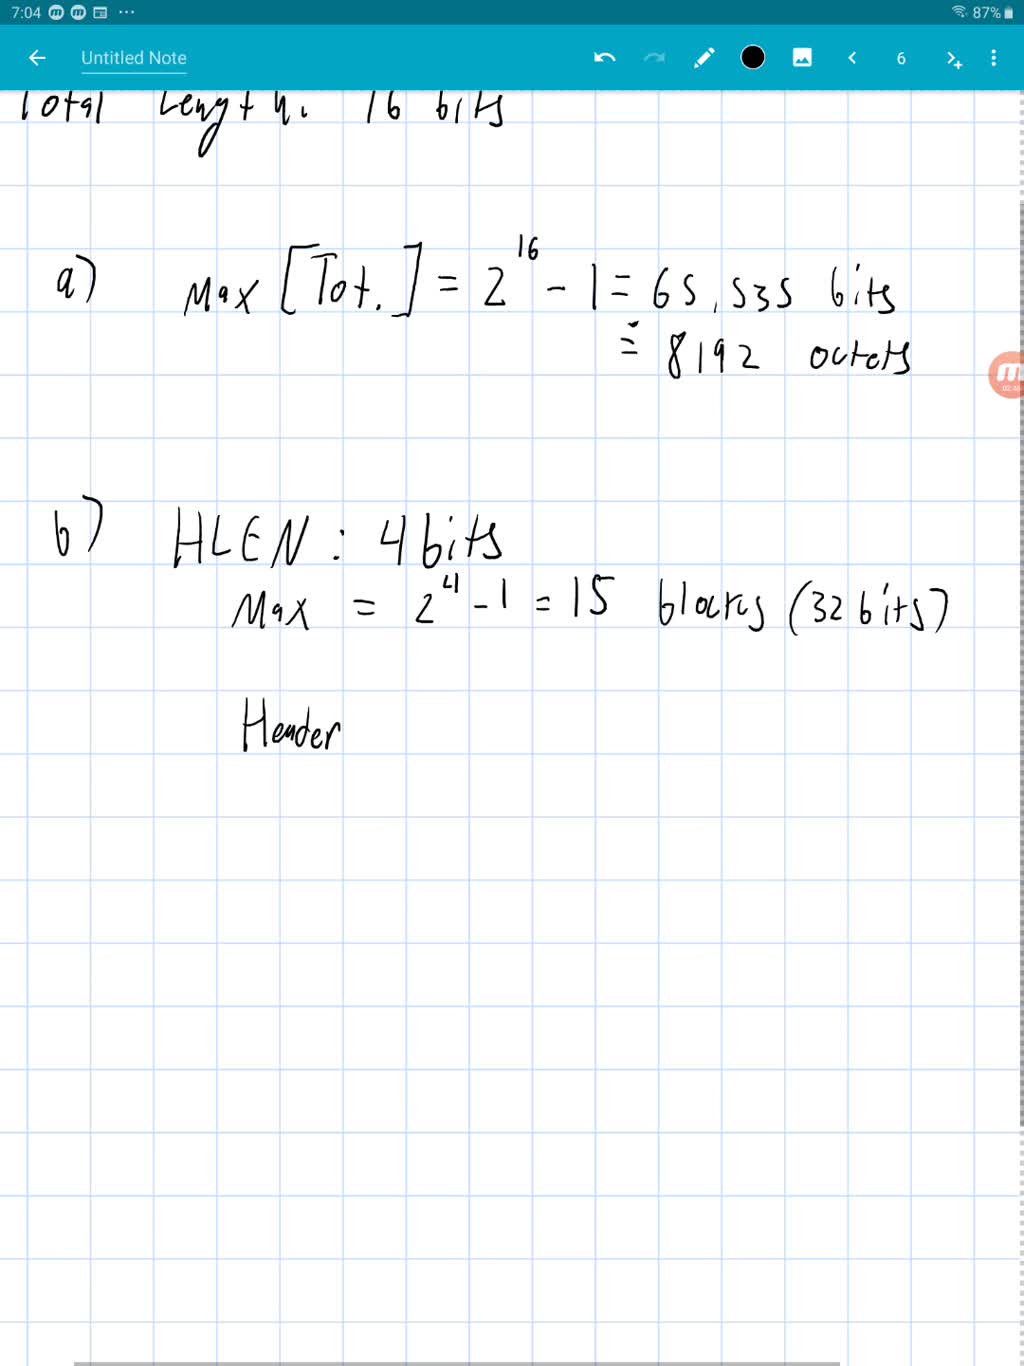 7:04 87%
Untitled Note 6
Total Length: 16 bits
a) Max [Tot.] = 2^16 - 1 = 65,535 bits
= 8192 octets
m
02:46
b) HLEN : 4 bits
Max = 2^4 - 1 = 15 blocks (32 bits)
Header